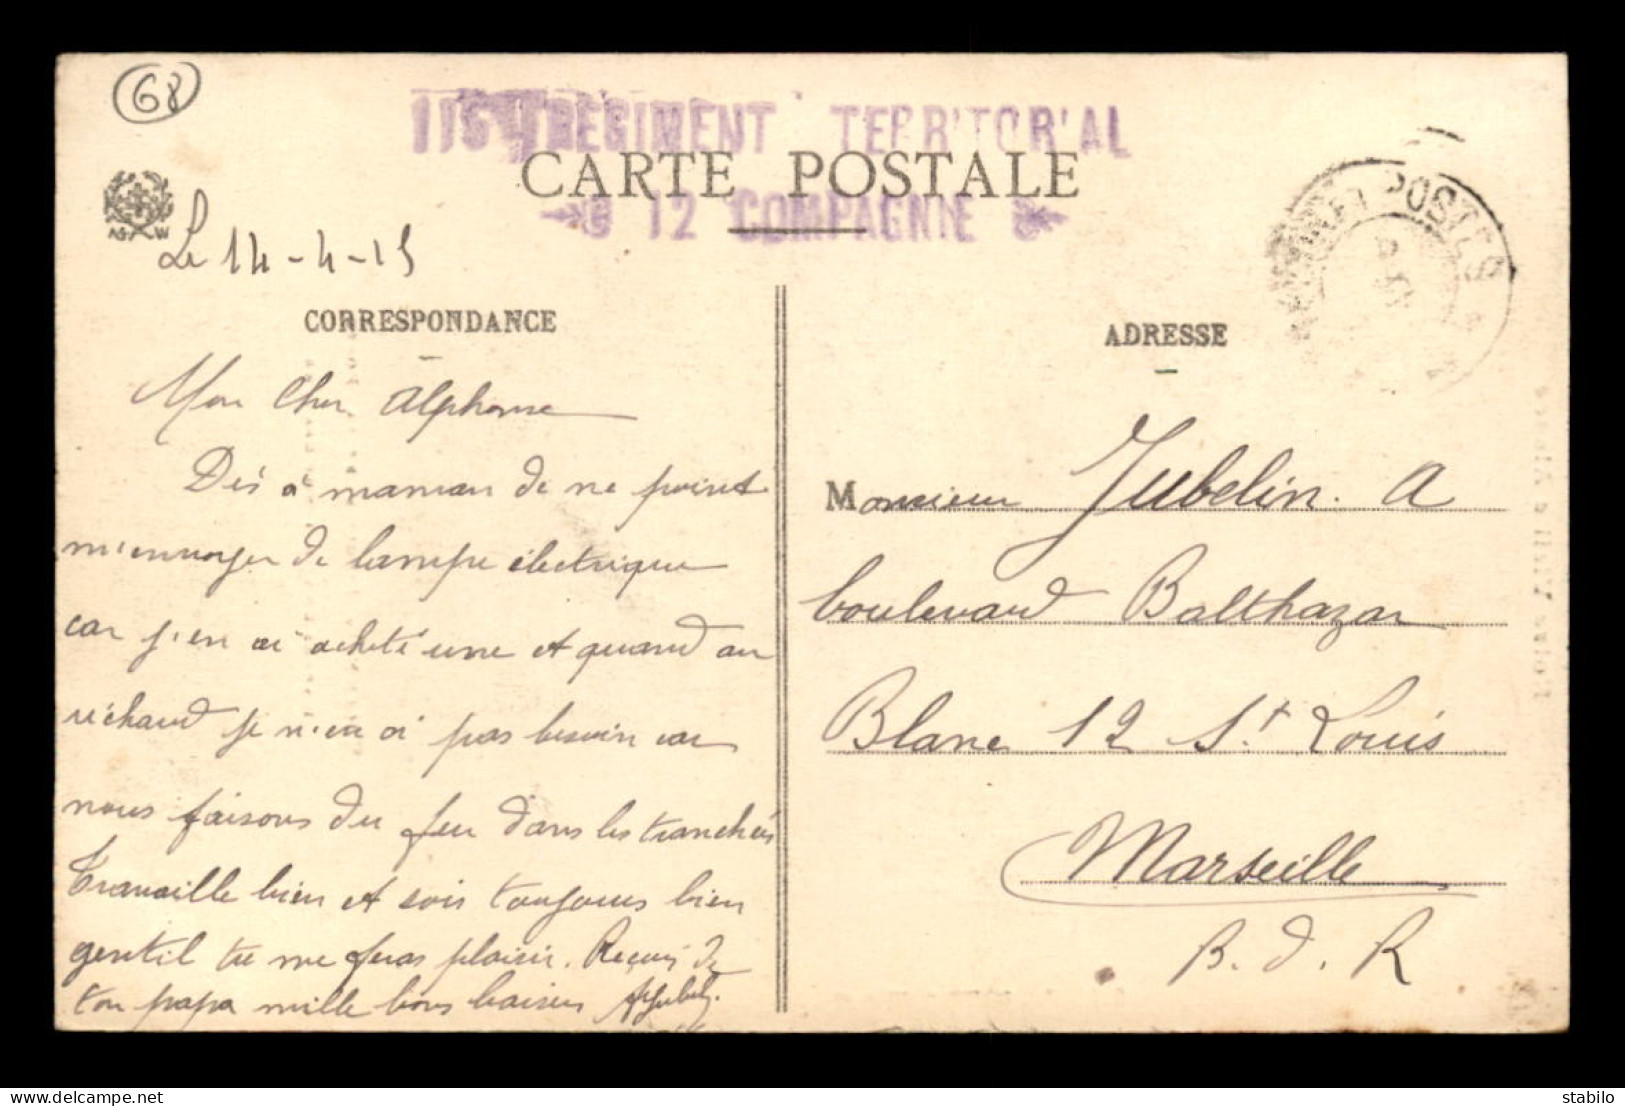 68
RÉGIMENT TERRITORIAL
CARTE POSTALE
12 COMPAGNIE
Le 14-4-15
CORRESPONDANCE
ADRESSE
POSTES
Mon cher Alphonse
Dis à maman de ne point
m'envoyer de lampe électrique
car j'en ai acheté une et quand au
réchaud je n'en ai pas besoin car
nous faisons du feu dans les tranchées
Travaille bien et sois toujours bien
gentil tu me feras plaisir. Reçois de
ton papa mille bons baisers
Monsieur Jubelin. A
boulevard Balthazar
Blanc 12 St Louis
Marseille
B. d. R
delcampe.net
stabilo